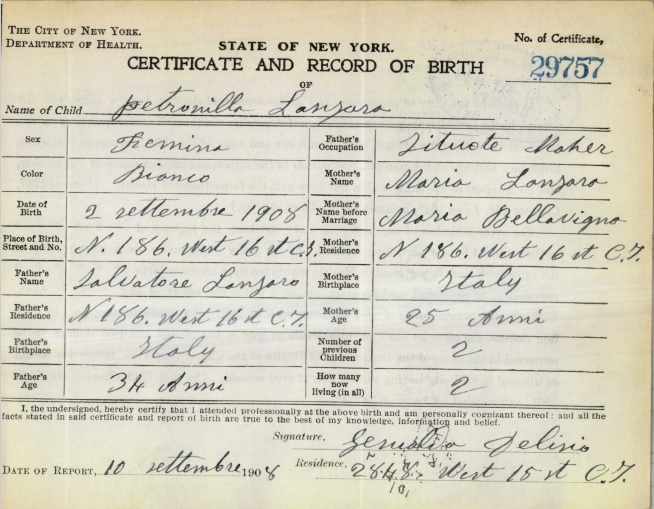 THE CITY OF NEW YORK.
DEPARTMENT OF HEALTH.
STATE OF NEW YORK.
CERTIFICATE AND RECORD OF BIRTH
OF
No. of Certificate,
29757
Name of Child Petronilla Lanzaro
Sex Femina
Father's Occupation
Color Bianco
Mother's Name Maria Lanzaro
Date of Birth 2 settembre 1908
Mother's Name before Marriage Maria Bellavigno
Place of Birth, Street and No. N. 186. West 16 st
Mother's Residence N 186. West 16 st
Father's Name Salvatore Lanzaro
Mother's Birthplace Italy
Father's Residence N 186. West 16 st
Mother's Age 25 Anni
Father's Birthplace Italy
Number of previous Children 2
Father's Age 34 Anni
How many now living (in all) 2
I, the undersigned, hereby certify that I attended professionally at the above birth and am personally cognizant thereof; and all the
facts stated in said certificate and report of birth are true to the best of my knowledge, information and belief.
Signature,
DATE OF REPORT, 10 settembre 1908
Residence, West 15 st